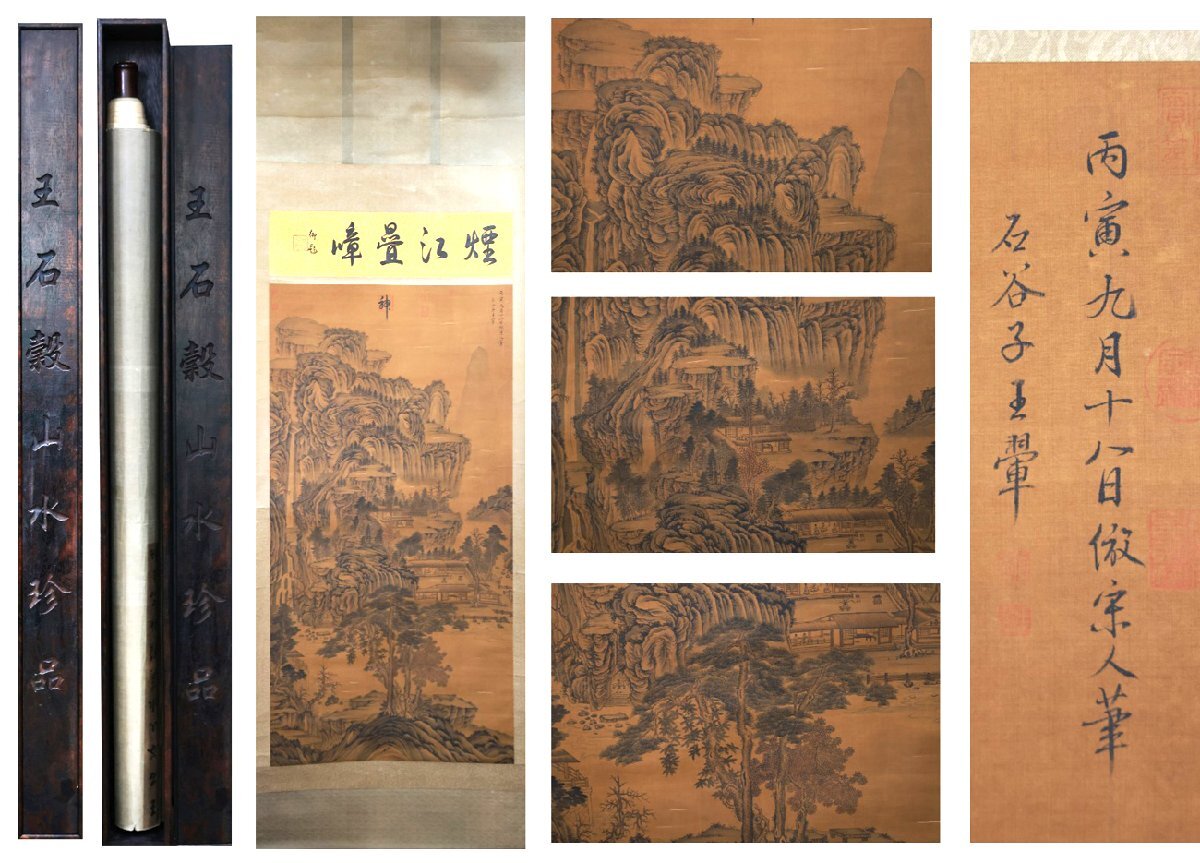 王石穀山水珍品
王石穀山水珍品
煙江疊嶂
御題
神
丙寅九月十八日倣宋人筆
石谷子王翬